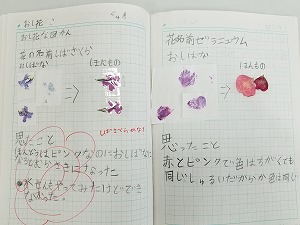 おし花
おし花なずかん
花の名前しばざくら
おしばな
ほんもの
⇒
思ったこと
ほんとうはピンクなのにおしばなに
むらさきになった
水せんもやってみたけどできなかった。
花名前ゼラニュウム
おしばな
ほんもの
⇒
思ったこと
赤とピンクで色はちがくても
同じしゅるいだからか色は同じ